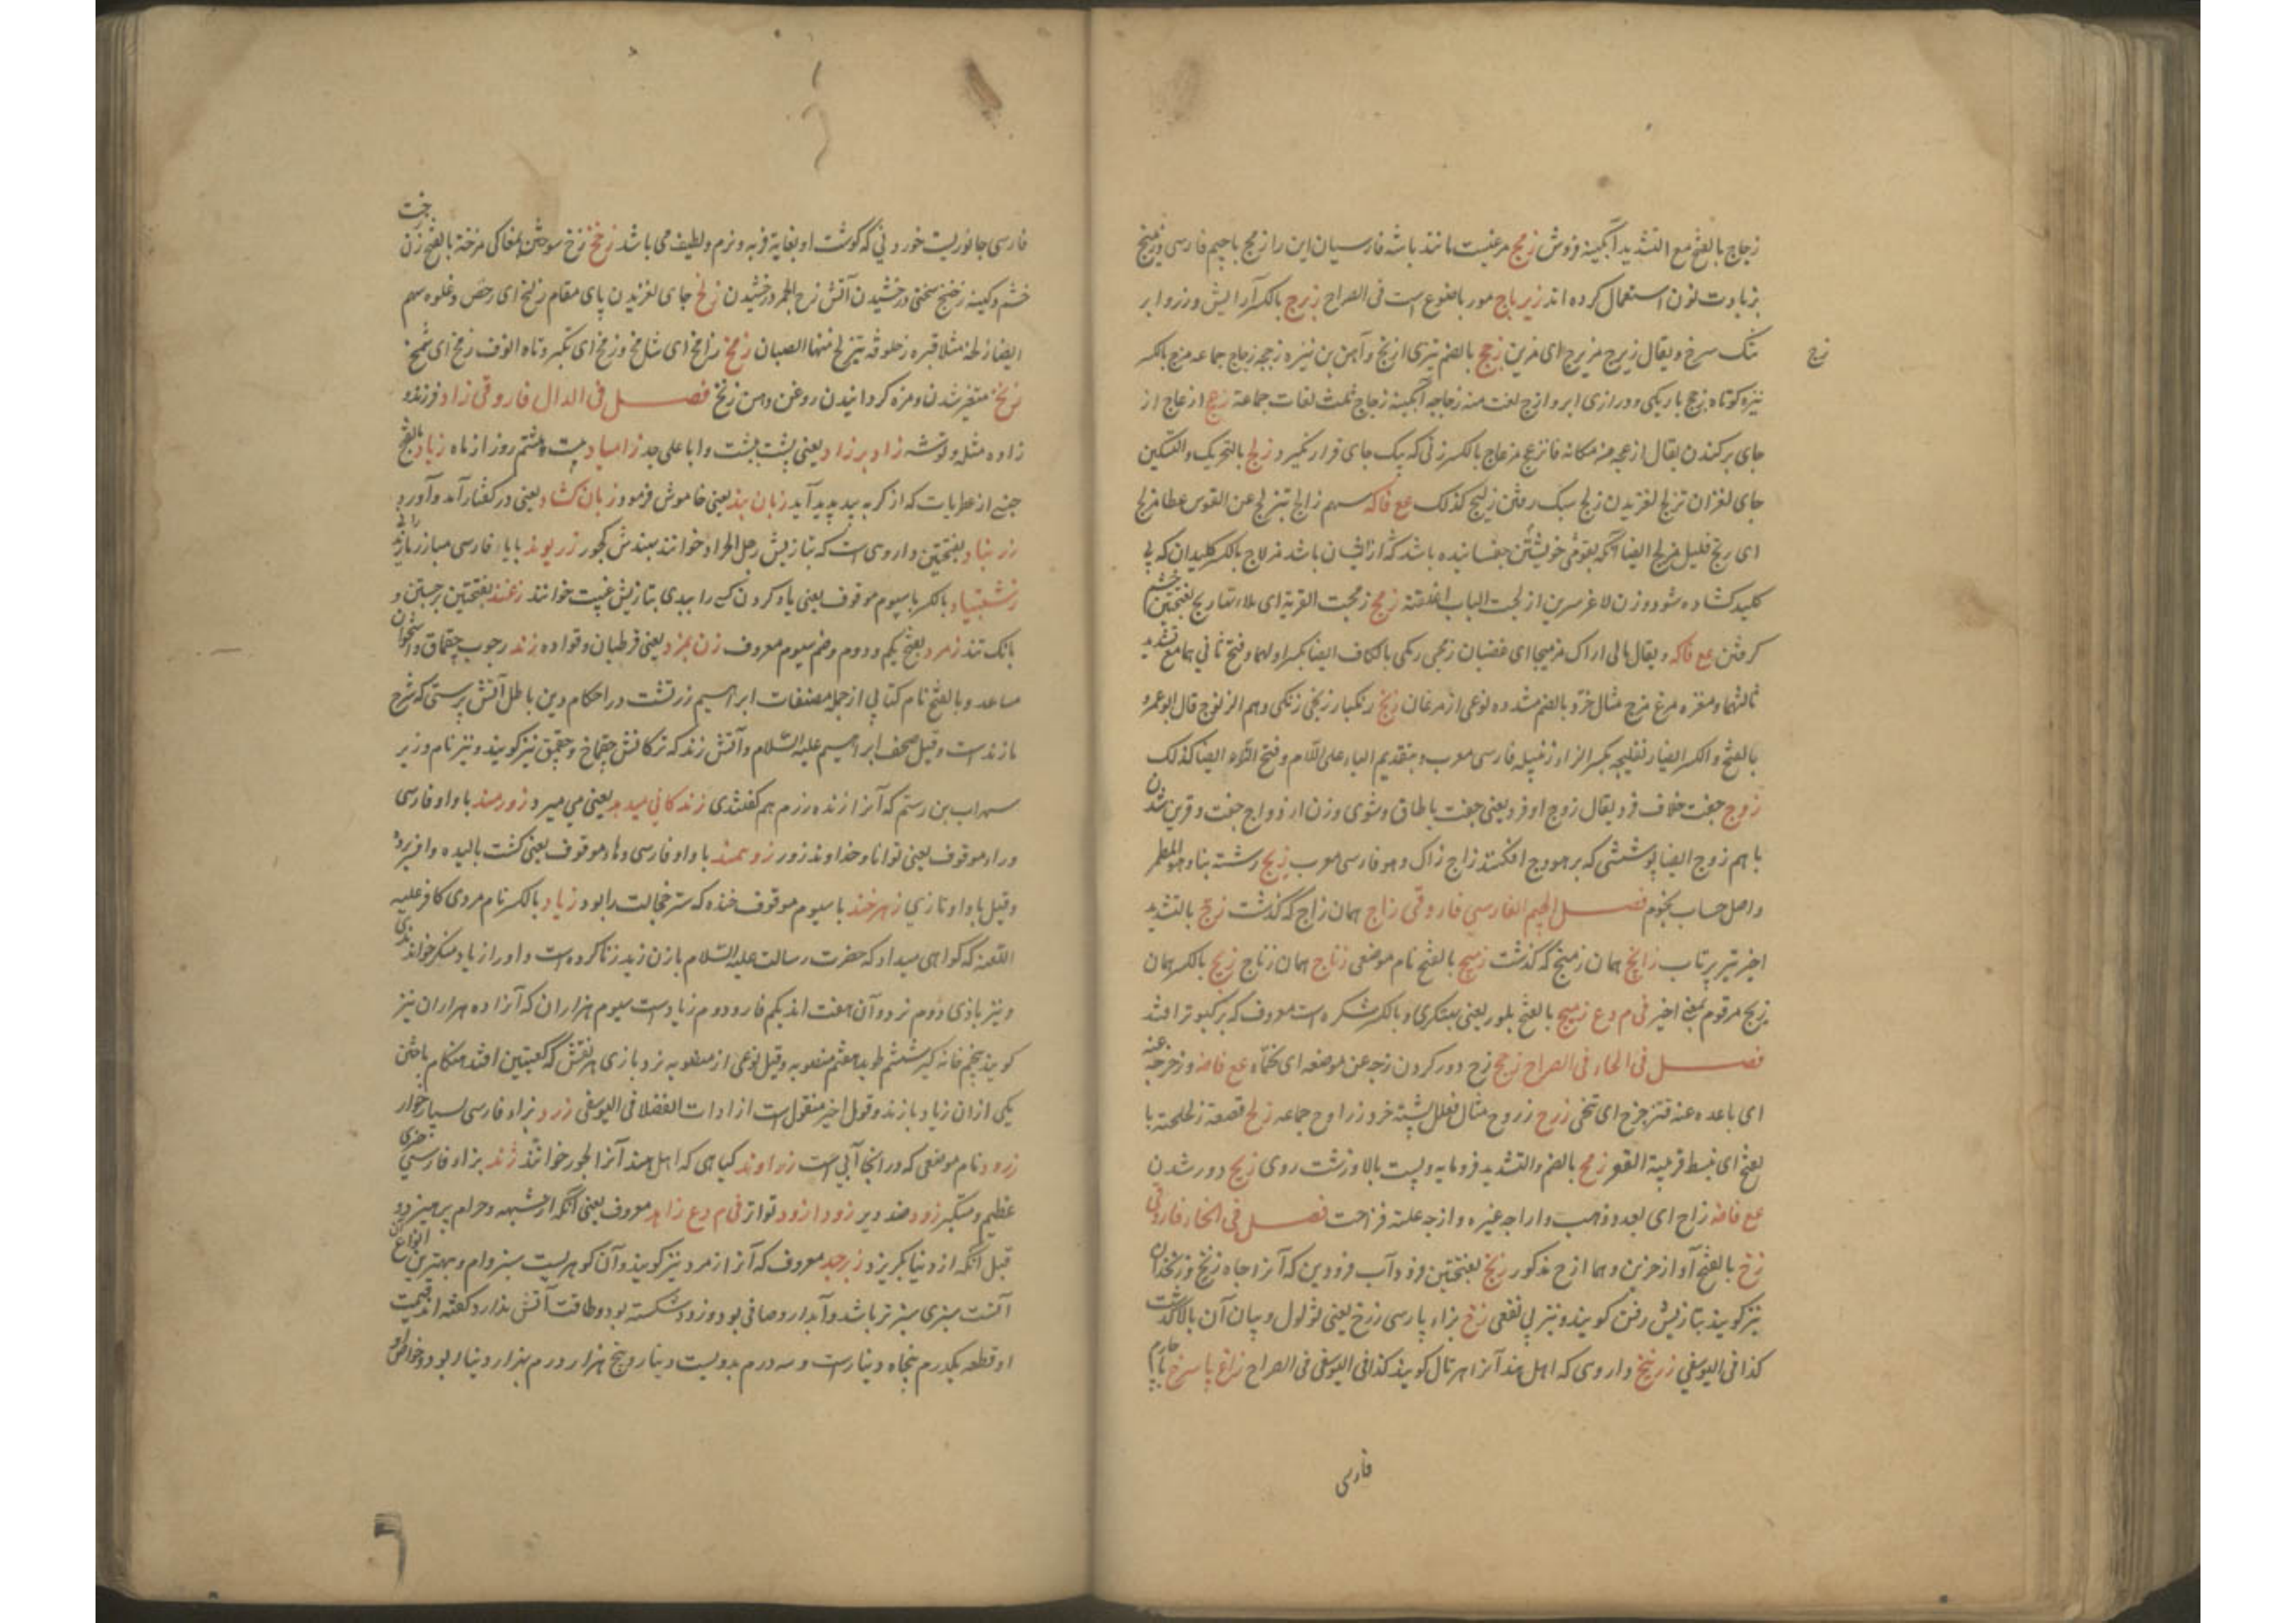 زجاج بالفتح مع التشدید آبگینه فروش زمج مرغیست مانند باشه فارسیان این را زمج باجیم فارسی و زمنج
بزیادت نون استعمال کرده اند زیرباج مورباضوع است فی الصراح زبرج بالکسر آرایش و زر و ابر
تنک سرخ و یقال زبرج مزبرج ای مزین زجج بالضم تیزی ارنج و آهن بن نیزه زججه زجاج جماعه مزج بالکسر
زج
نیزه کوتاه زجج باریکی و درازی ابرو ازج لغت منه زجاجه آبگینه زجاج ثلث لغات جماعة زعج ازعاج از
جای برکندن یقال ازعجه من مکانه فانزعج مزعاج بالکسر زنی که یک جای قرار نگیرد زلج بالتحریک والتسکین
جای لغزان تزلج لغزیدن زلج سبک رفتن زلیج کذلک مع فاکه سهم زالج تیزلج عن القوس عطا مزلج
ای رتح قلیل مزلج ایضا آنکه بقومی خویشتن چفسانیده باشد که ازیشان باشد مزلاج بالکسر کلیدان که بی
کلید کشاده شود و زن لاغر سرین ازلجت الباب اغلقته زمج زمجت القربة ای ملاءتها زمج بفتحتین خشم
کرفتن مع فاکه و یقال مالی اراک مزمیجا ای غضبان زمجی زمکی بالکاف ایضا بکسر اولهما و فتح ثانی هما مع تشدید
ثالثهما و مقره مرغ مزج مثال خرد بالضم مشدده نوعی از مرغان زنج زنکبار زنجی زنکی و هم الزنوج قال ابو عمرو
بالفتح و الکسر ایضا زنفلیجه بکسر الزاء زنبیله فارسی معرب و بتقدیم الباء علی اللام و فتح الزاء ایضا کذلک
زوج جفت خلاف فرد یقال زوج او فرد یعنی جفت یا طاق و شوی و زن ازدواج جفت و قرین شدن
باهم زوج ایضا پوششی که بر هودج افکنند زاج زاک و هو فارسی معرب زیج رشته بنا و هو المطمر
و اصل حساب نجوم فصل الجیم الفارسی فاروقی زاج همان زاج که گذشت زج بالتشدید
اخیر تیر پرتاب زامج همان زمنج که گذشت زمج بالفتح نام موضعی زناج همان زناج زیج بالکسر همان
زیج مرقوم بمعنی اخیر فی م دع زمیج بالفتح بلور یعنی پهتکری و بالکسر شکره است معروف که بر کبوتر افتد
فصل فی الحاء فی الصراح زحح زح دور کردن زحه عن موضعه ای نحاه مع فاضه و زحزحه عنه
ای باعده عنه فتزحزح ای تنحی زرح زروح مثال فعلل پشته خرد زراوح جماعه زلح قصعة زلحلحة با
لفتح ای منبسط قریبة القعر زمح بالضم والتشدید فرومایه و پست بالا و زشت روی زیح دور شدن
مع فاضه زاح ای بعد و ذهب و ازاحه غیره و ازحه علته فزاحت فصل فی الخاء فاروقی
زخ بالفتح آواز حزین و هما ازح مذکور زنخ بفتحتین فرود آب فرودین که آنرا چاه زنخ و زنخدان
نیز گویند بتازیش ذقن گویند و نیز بی نفعی زخ بزاء پارسی زرخ یعنی لؤلول و بیان آن بالا گذشت
کذا فی الیوسفی زرنیخ داروی که اهل هند آنرا هرتال گویند کذا فی الیوسفی فی الصراح زاغ پا سرخ با جیم
فارسی
فارسی جانوریست خوردنی که گوشت او بغایة فربه و نرم و لطیف می باشد زخخ زخ سوختن بمغاکی مزخة بالفتح زن
خشم و کینه زخیخ سختی درخشیدن آتش زخ الجمر درخشیدن زلخ جای لغزیدن پای مقام زلخ ای رحض و غلوه سهم
ایضا زلخه مثال قبره زحلوقه یتزلخ منها الصبیان زمخ زامخ ای شامخ و زمخ ای تکبر و تاه الوف زمخ ای شمخ
زنخ متغیر شدن و مزه گردانیدن روغن دهن زنخ فصل فی الدال فاروقی زاد فرزند و
زاده مثله و توشه زاد بر زاد یعنی پشت بپشت و ابا علی جد زامیاد بیست و هشتم روز از ماه زباد بالفتح
جنسی از عطریات که از گربه بید پدید آید زبان بند یعنی خاموش فرمود زبان کشاد یعنی در گفتار آمد و آورد
زرنباد بفتحتین داروی است که بتازیش رجل الجراد خوانند بهندش کچور زریوند بایاء فارسی مبارز مازندرانی
زشتیاد بالکسر باسیوم موقوف یعنی یاد کردن کسی را ببدی بتازیش غیبت خوانند زغند بفتحتین برجستن و
بانک تند زمرد بفتح یکم و دوم و ضم سیوم معروف زن بمزد یعنی قرطبان و قواده زند زجوب چقماق و استخوان
ساعد و بالفتح نام کتابی از جمله مصنفات ابراهیم زرتشت در احکام دین باطل آتش پرستی که شرح
پازند است و قیل صحف ابراهیم علیه السلام و آتش زند که ترکانش چقماخ و چقمق نیز گویند و نیز نام وزیر
سهراب بن رستم که آنرا زنده رزم هم گفتندی زندکانی میدهد یعنی می میرد زورمند با واو فارسی
و راء موقوف یعنی توانا و خداوند زور زومند با واو فارسی و هاء موقوف یعنی کشت بالیده و افزوده
و قیل با واو تازی زهرخند باسیوم موقوف خنده که ستر خجالت را بود زیاد بالکسر نام مردی کافر علیه
اللعنه که گواهی میداد که حضرت رسالت علیه السلام بازن زید زنا کرده است و او را زیاد منکر خوانندی
و نیز بازی دوم نرد و آن هفت اند یکم فارد دوم زیاد است سیوم هزاران که آنرا ده هزاران نیز
گویند پنجم خانه گیر ششم طویل هفتم منصوبه و قیل نوعی از منصوبه نرد بازی هر نقش که کعبتین افتد هنگام باختن
یکی ازان زیاد بازند و قول اخیر منقول است از ادات الفضلا فی الیوسفی زرد بزاء فارسی بسیار خوار
زرود نام موضعی که در آنجا آبی است زراوند گیاهی که اهل هند آنرا الجور خوانند ژند بزاء فارسی
عظیم و ستکبر زود ضد دیر زودازود تواتر فی م دع زاهد معروف یعنی آنکه از شبهه و حرام پرهیزد و
قیل آنکه از دنیا بگریزد زبرجد معروف که آنرا زمرد نیز گویند و آن گوهریست سبز وام و بهترین انواع
آنست سبزی سبزتر باشد و آبدار و صافی بود و زود شکسته بود و طاقت آتش ندارد و گفته اند قیمت
او قطعه یکدرم پنجاه دینار است و سه درم بدویست دینار و پنج هزار درم بهزار دینار بود و خواص او